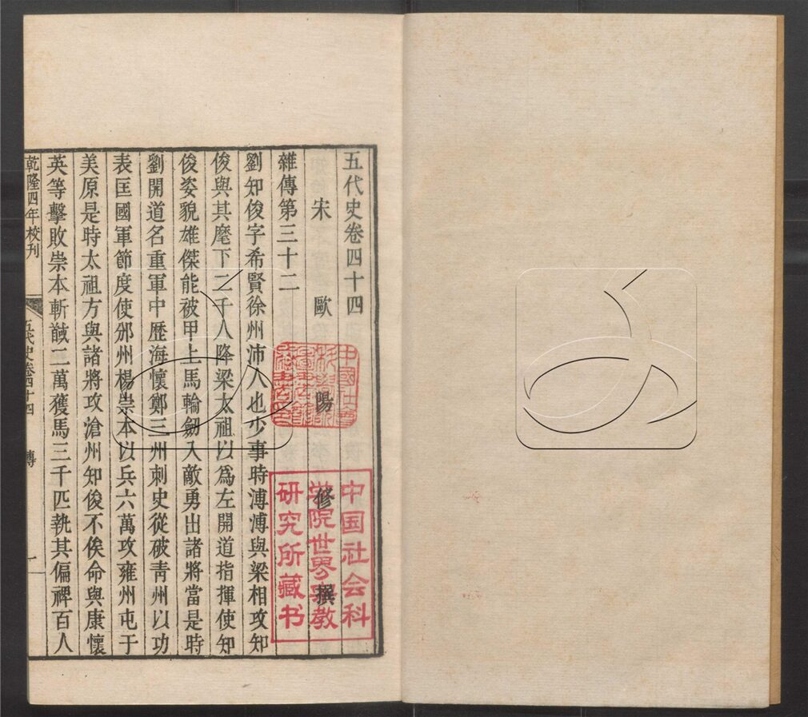 五代史卷四十四
宋歐陽修撰
雜傳第三十二
劉知俊字希賢徐州沛人也少事時溥溥與梁相攻知
俊與其麾下二千人降梁太祖以爲左開道指揮使知
俊姿貌雄傑能被甲上馬輪劒入敵勇出諸將當是時
劉開道名重軍中歷海懷鄭三州刺史從破青州以功
表匡國軍節度使邠州楊崇本以兵六萬攻雍州屯于
美原是時太祖方與諸將攻滄州知俊不俟命與康懷
英等擊敗崇本斬馘二萬獲馬三千匹執其偏裨百人
乾隆四年校刊
五代史卷四十四 傳 一
中国社会科
学院世界宗教
研究所藏书